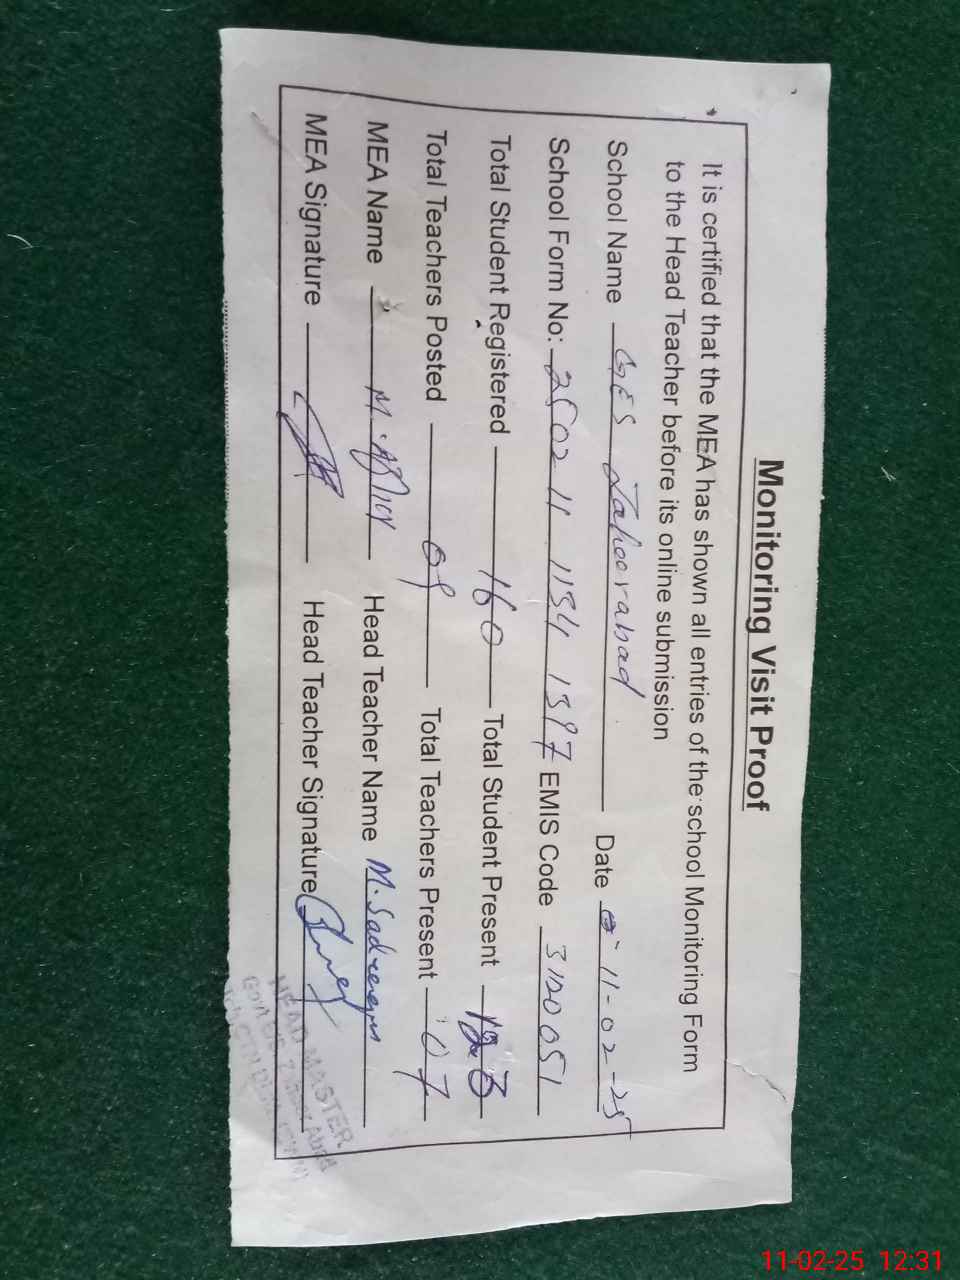 Monitoring Visit Proof
It is certified that the MEA has shown all entries of the school Monitoring Form
to the Head Teacher before its online submission
School Name GES Zaheerabad Date 11-02-25
School Form No: 2502 11 1134 1397 EMIS Code
Total Student Registered 160 Total Student Present
Total Teachers Posted 09 Total Teachers Present 07
MEA Name M. Head Teacher Name M.
MEA Signature Head Teacher Signature
HEAD MASTER
11-02-25 12:31